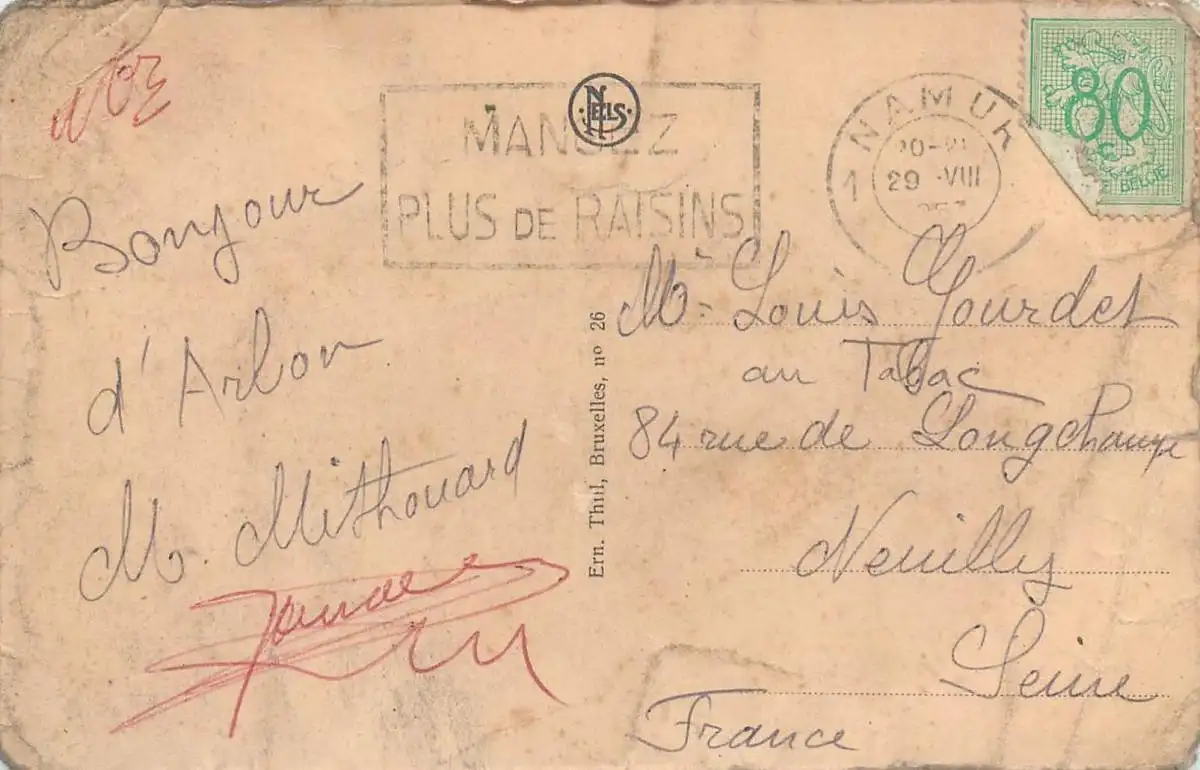 Bonjour
d'Arlon
M. Mithouard
NELS
MANGEZ
PLUS DE RAISINS
1 NAMUR
20-21
29 VIII
80
c
BELGIE
Ern. Thill, Bruxelles, nº 26
Mr Louis Gourdet
au Tabac
84 rue de Longchamp
Neuilly
Seine
France